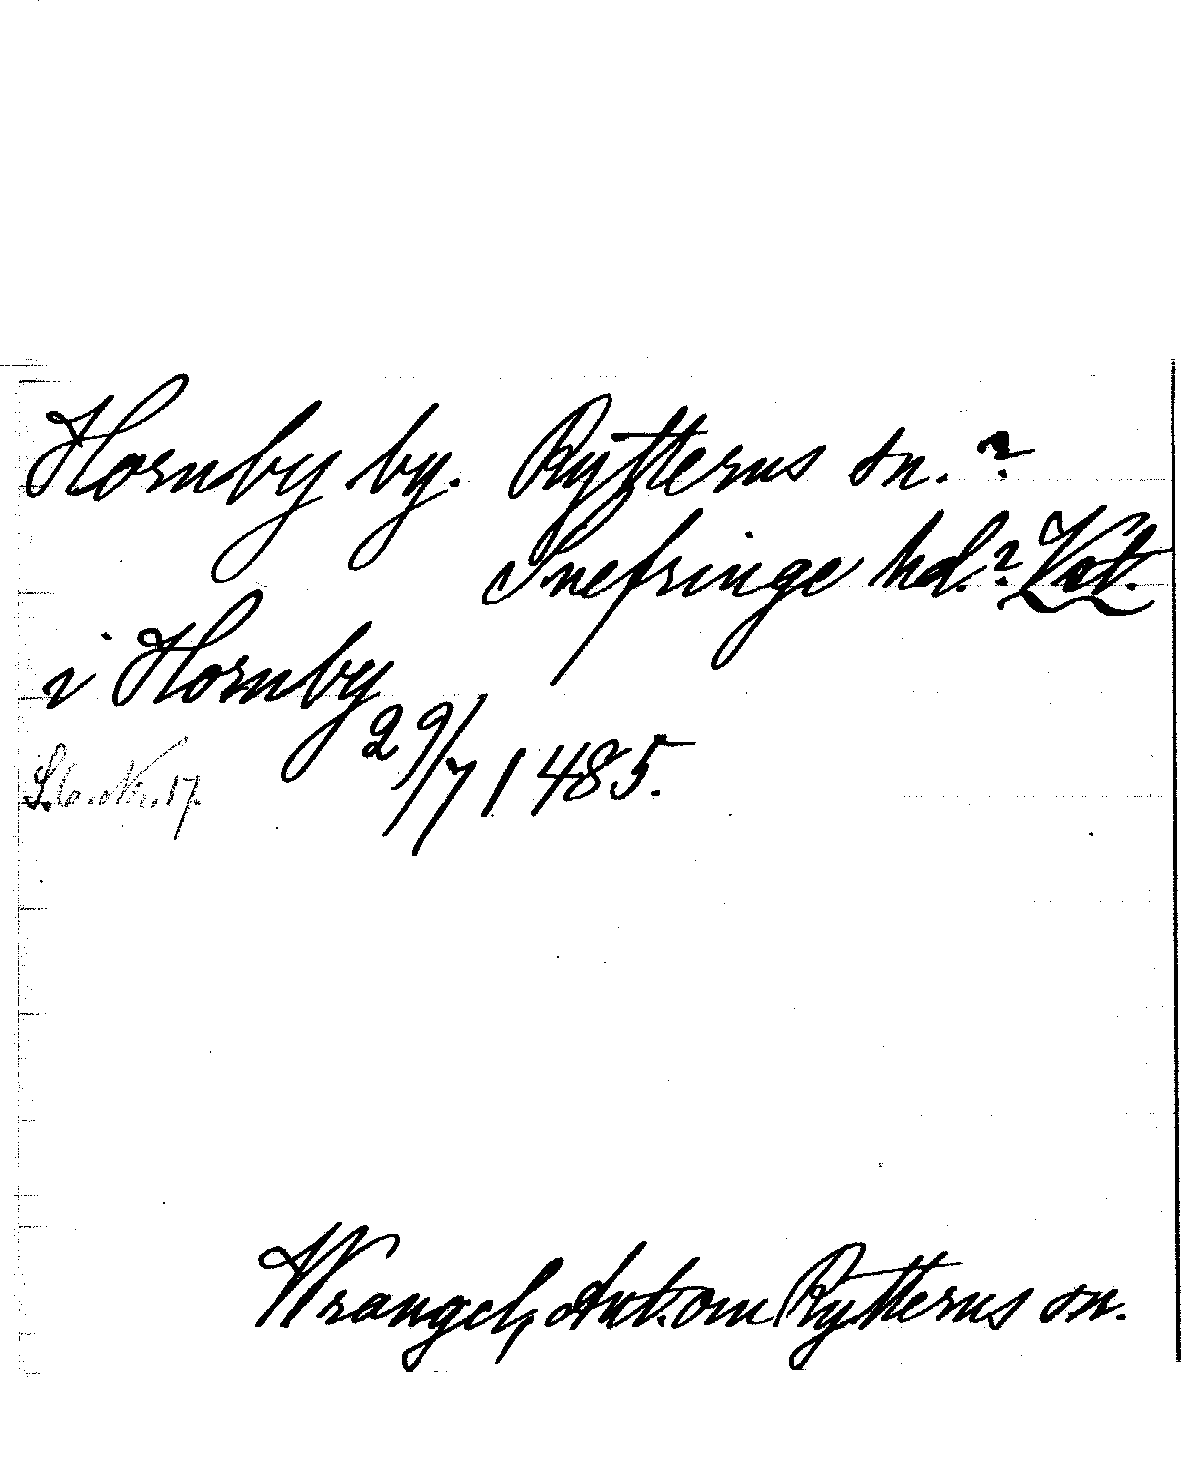 Hornby by. Rytterns sn.?
Snefringe hd.? Vst.
i Hornby
29/7 1485.
Nr. 17.
Wrangel, Ant. om Rytterns sn.